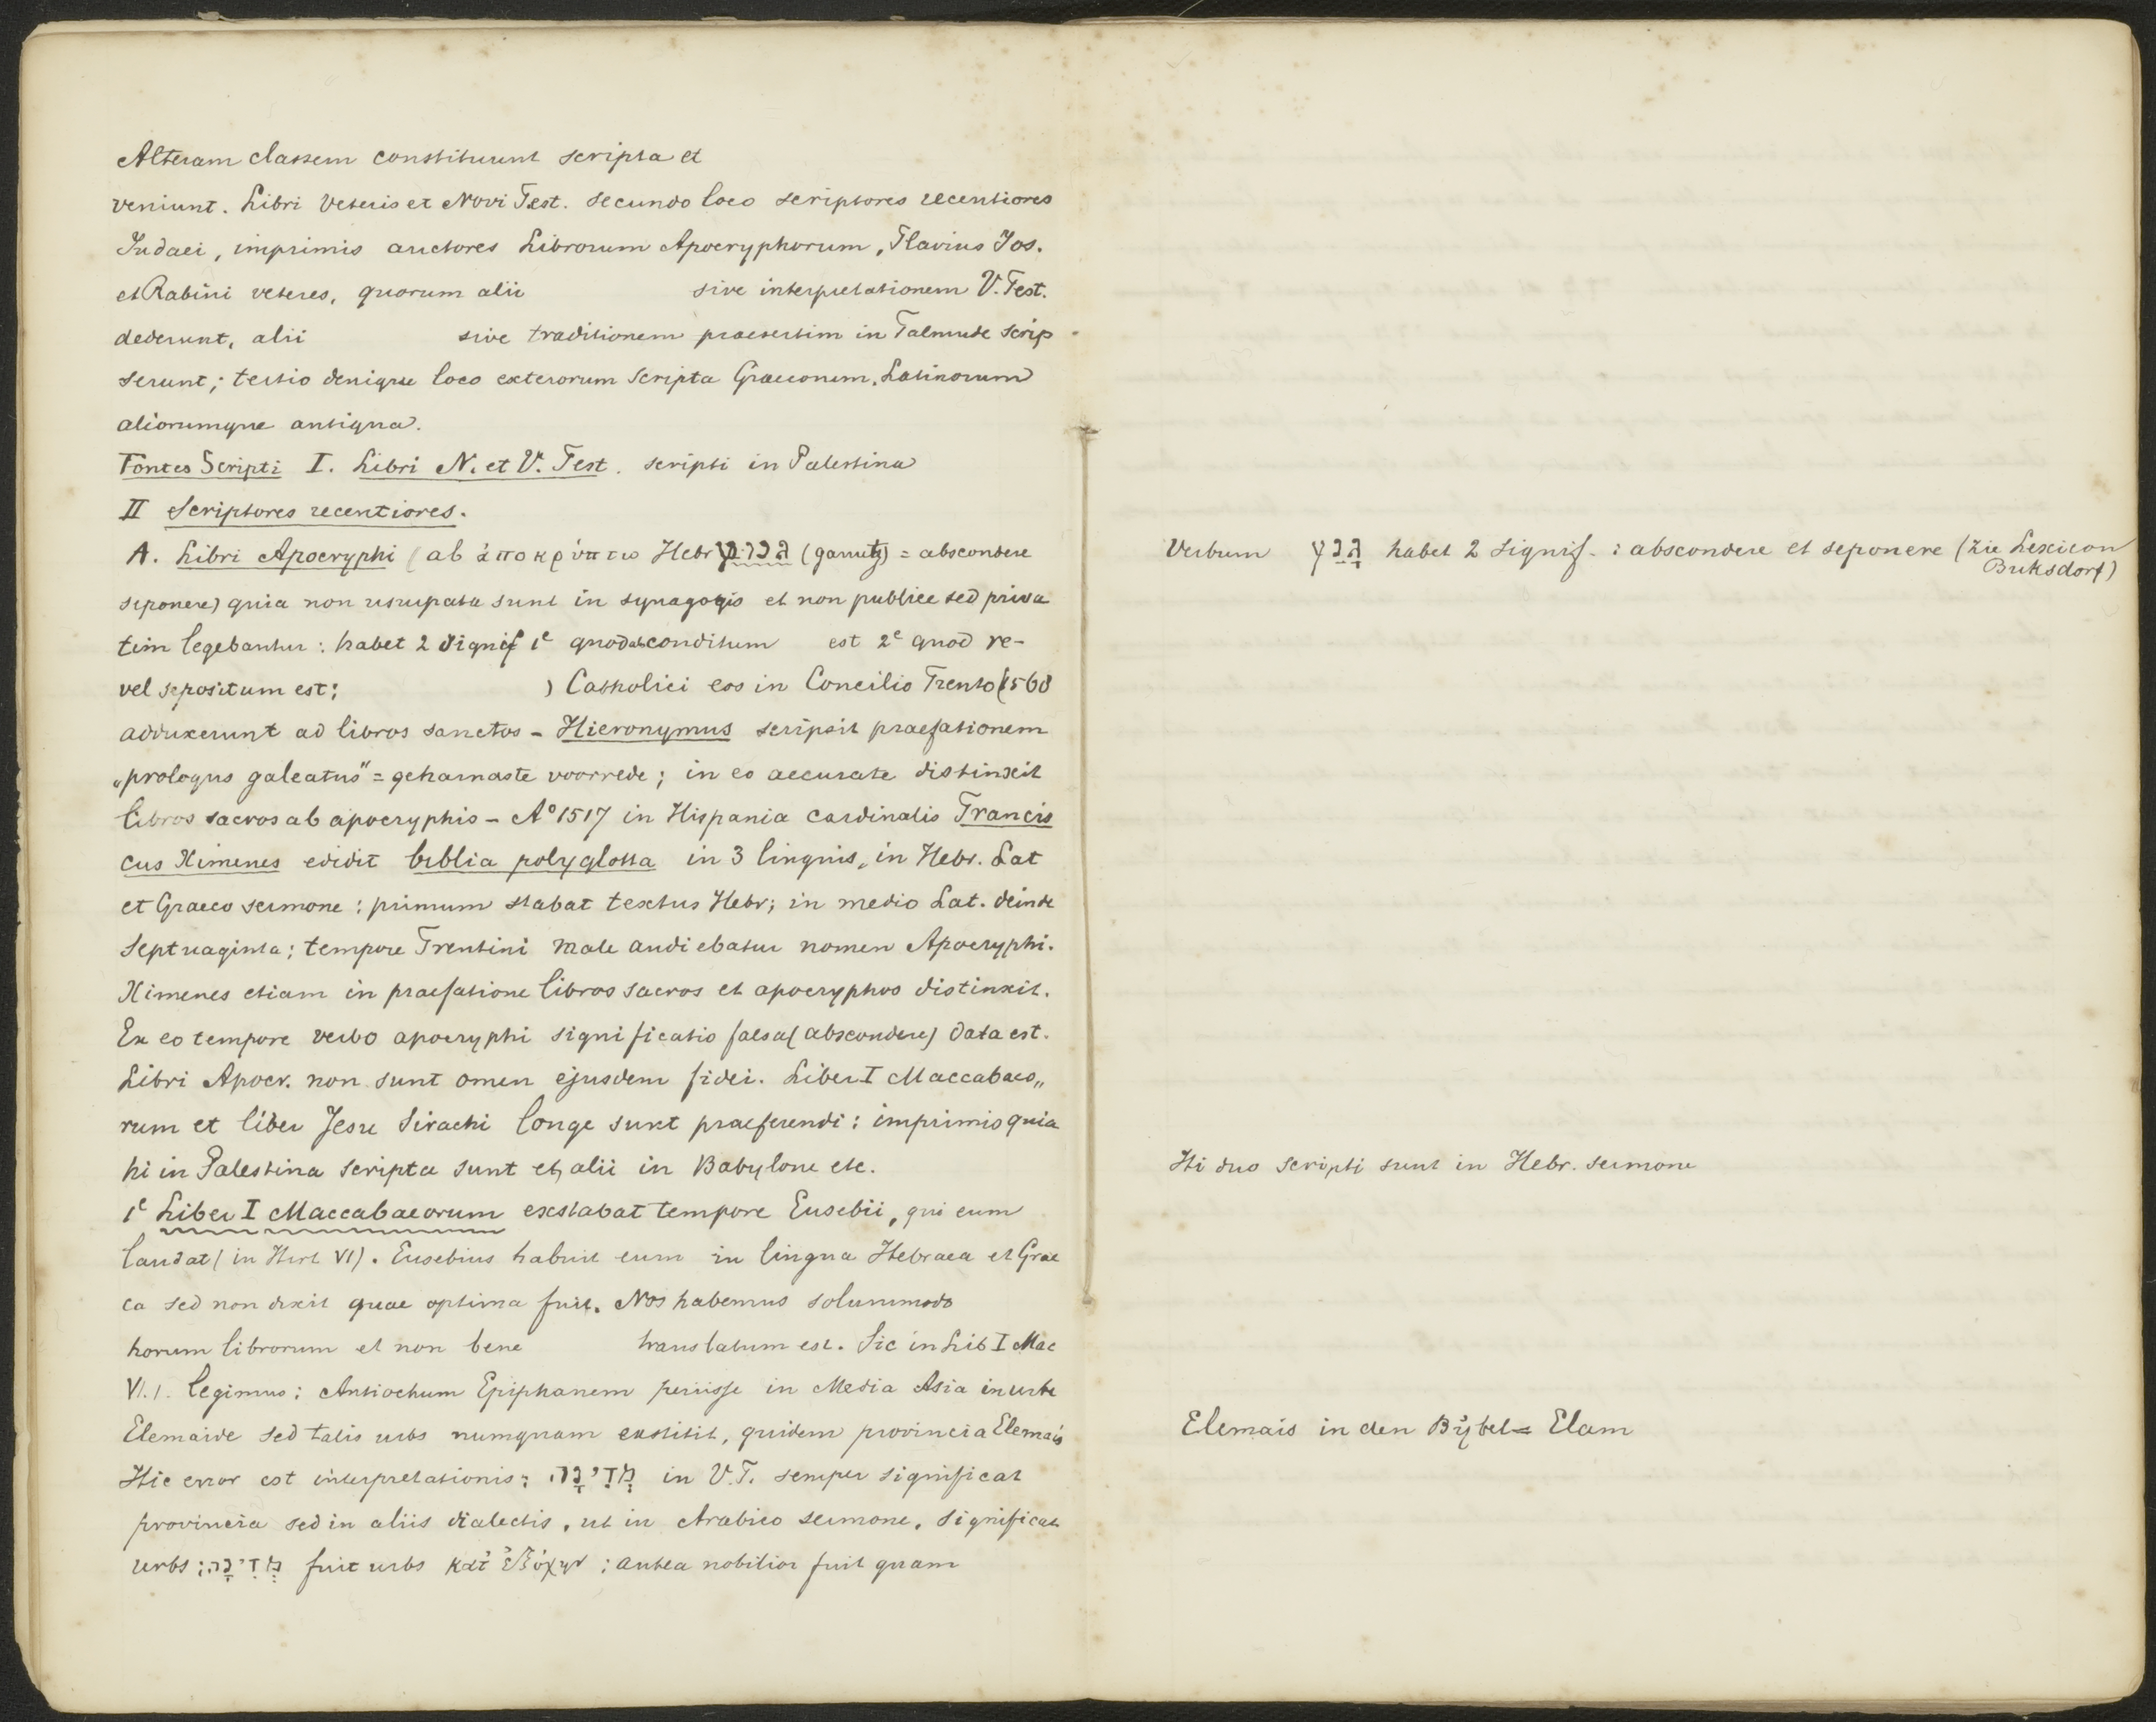 Alteram classem constituunt scripta et
veniunt. Libri Veteris et Novi Test. secundo loco scriptores recentiores
Judaei, imprimis auctores Librorum Apocryphorum, Flavius Jos.
et Rabini veteres, quorum alii sive interpretationem V. Test.
dederunt, alii sive traditionem praesertim in Talmude scrip
serunt; tertio denique loco exterorum scripta Graecorum, Latinorum
aliorumque antiqua.
Fontes Scripti I. Libri N. et V. Test. scripti in Palestina
II Scriptores recentiores.
A. Libri Apocryphi (ab ἀποκρύπτω Hebr (ganutz) = abscondere
seponere) quia non usurpata sunt in synagogis et non publice sed priva
tim legebantur: habet 2 signif 1e quod absconditum est 2e quod re-
vel sepositum est; ) Catholici eos in Concilio Trento (1560
adduxerunt ad libros sanctos - Hieronymus scripsit praefationem
„prologus galeatus" = geharnaste voorrede; in eo accurate distinxit
libros sacros ab apocryphis - Ao 1517 in Hispania cardinalis Francis
cus Ximenes edidit biblia polyglotta in 3 linguis, in Hebr. Lat
et Graeco sermone: primum stabat textus Hebr; in medio Lat. deinde
septuaginta; tempore Trentini male audiebatur nomen Apocryphi.
Ximenes etiam in praefatione libros sacros et apocryphos distinxit.
Ex eo tempore verbo apocryphi significatio falsa (abscondere) data est.
Libri Apocr. non sunt omen ejusdem fidei. Liber I Maccabaeo„
rum et liber Jesu Sirachi longe sunt praeferendi: imprimis quia
hi in Palestina scripta sunt et alii in Babylone etc.
1e Liber I Maccabaeorum exstabat tempore Eusebii, qui eum
laudat (in Hist VI). Eusebius habuit eum in lingua Hebraea et Grae
ca sed non dixit quae optima fuit. Nos habemus solummodo
horum librorum et non bene translatum est. Sic in Lib I Mac
VI.1. legimus: Antiochum Epiphanem periisse in Media Asia in urbe
Elemaide sed talis urbs numquam exstitit, quidem provincia Elemais
Hic error est interpretationis: מְדִינָה in V.T. semper significat
provincia sed in aliis dialectis, ut in Arabico sermone, significat
urbs: מְדִינָה fuit urbs κατ' ἐξόχην; antea nobilior fuit quam
Verbum גָּנַץ habet 2 signif.: abscondere et seponere (zie Lexicon
Buksdorf)
Hi duo scripti sunt in Hebr. sermone
Elemais in den Bijbel = Elam